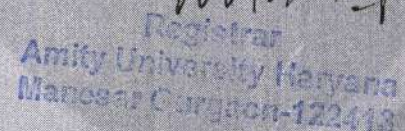 Registrar
Amity University Haryana
Manesar Gurgaon-122413